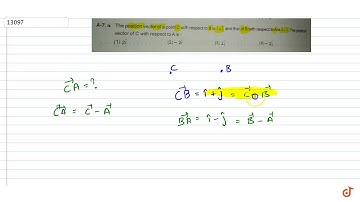 13097
A-7. The position vector of a point C with respect to B is i + j and that of B with respect to A is i – j. The position
vector of C with respect to A is -
(1) 2i (2) – 2i (3) 2j (4) – 2j
C B
CA = ?
CB = i + j = C - B
CA = C - A
BA = i - j = B - A
doubtnut